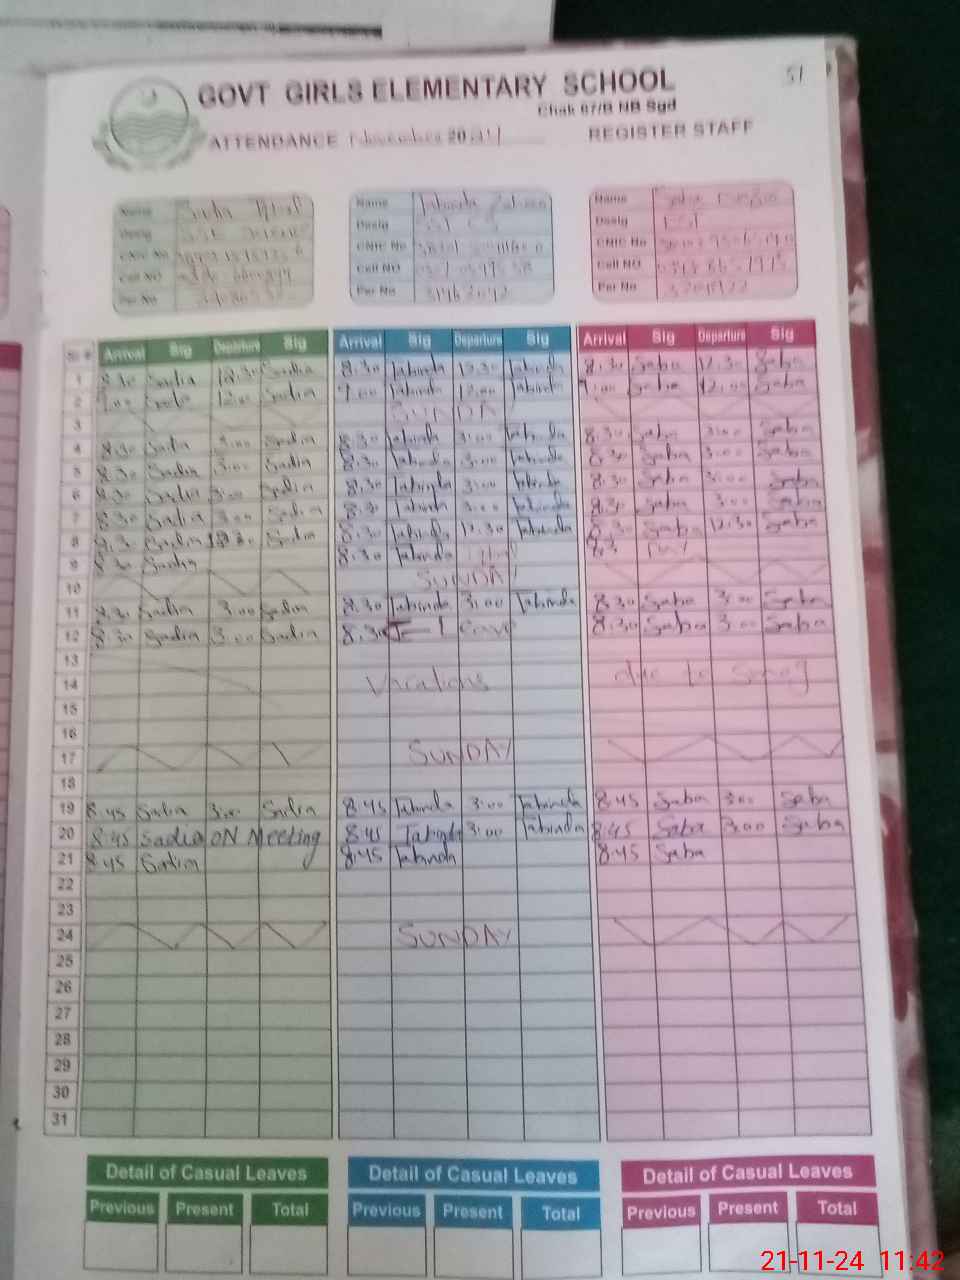 51
GOVT GIRLS ELEMENTARY SCHOOL
Chak 67/B NB Sgd
ATTENDANCE November 2024 REGISTER STAFF
Name Sadia Name Tabinda Name Saba
Desig Desig EST Desig EST
CNIC No CNIC No CNIC No
Cell NO Cell NO Cell NO
Per No Per No Per No
Sr # Arrival Sig Departure Sig Arrival Sig Departure Sig Arrival Sig Departure Sig
1 8.30 Sadia 12.30 Sadia 8.30 Tabinda 12.30 Tabinda 8.30 Saba 12.30 Saba
2 9.00 Sadia 12.00 Sadia 9.00 Tabinda 12.00 Tabinda 9.00 Saba 12.00 Saba
3 SUNDAY
4 8.30 Sadia 3.00 Sadia 8.30 Tabinda 3.00 Tabinda 8.30 Saba 3.00 Saba
5 8.30 Sadia 3.00 Sadia 8.30 Tabinda 3.00 Tabinda 8.30 Saba 3.00 Saba
6 8.30 Sadia 3.00 Sadia 8.30 Tabinda 3.00 Tabinda 8.30 Saba 3.00 Saba
7 8.30 Sadia 3.00 Sadia 8.30 Tabinda 3.00 Tabinda 8.30 Saba 3.00 Saba
8 8.30 Sadia 12.30 Sadia 8.30 Tabinda 12.30 Tabinda 8.30 Saba 12.30 Saba
9 8.30 Sadia 8.30 Tabinda
10 SUNDAY
11 8.30 Sadia 3.00 Sadia 8.30 Tabinda 3.00 Tabinda 8.30 Saba 3.00 Saba
12 8.30 Sadia 3.00 Sadia 8.30 Leave 8.30 Saba 3.00 Saba
13
14 Vacations due to Smog
15
16
17 SUNDAY
18
19 8.45 Sadia 3.00 Sadia 8.45 Tabinda 3.00 Tabinda 8.45 Saba 3.00 Saba
20 8.45 Sadia ON Meeting 8.45 Tabinda 3.00 Tabinda 8.45 Saba 3.00 Saba
21 8.45 Sadia 8.45 Tabinda 8.45 Saba
22
23
24 SUNDAY
25
26
27
28
29
30
31
Detail of Casual Leaves Detail of Casual Leaves Detail of Casual Leaves
Previous Present Total Previous Present Total Previous Present Total
21-11-24 11:42